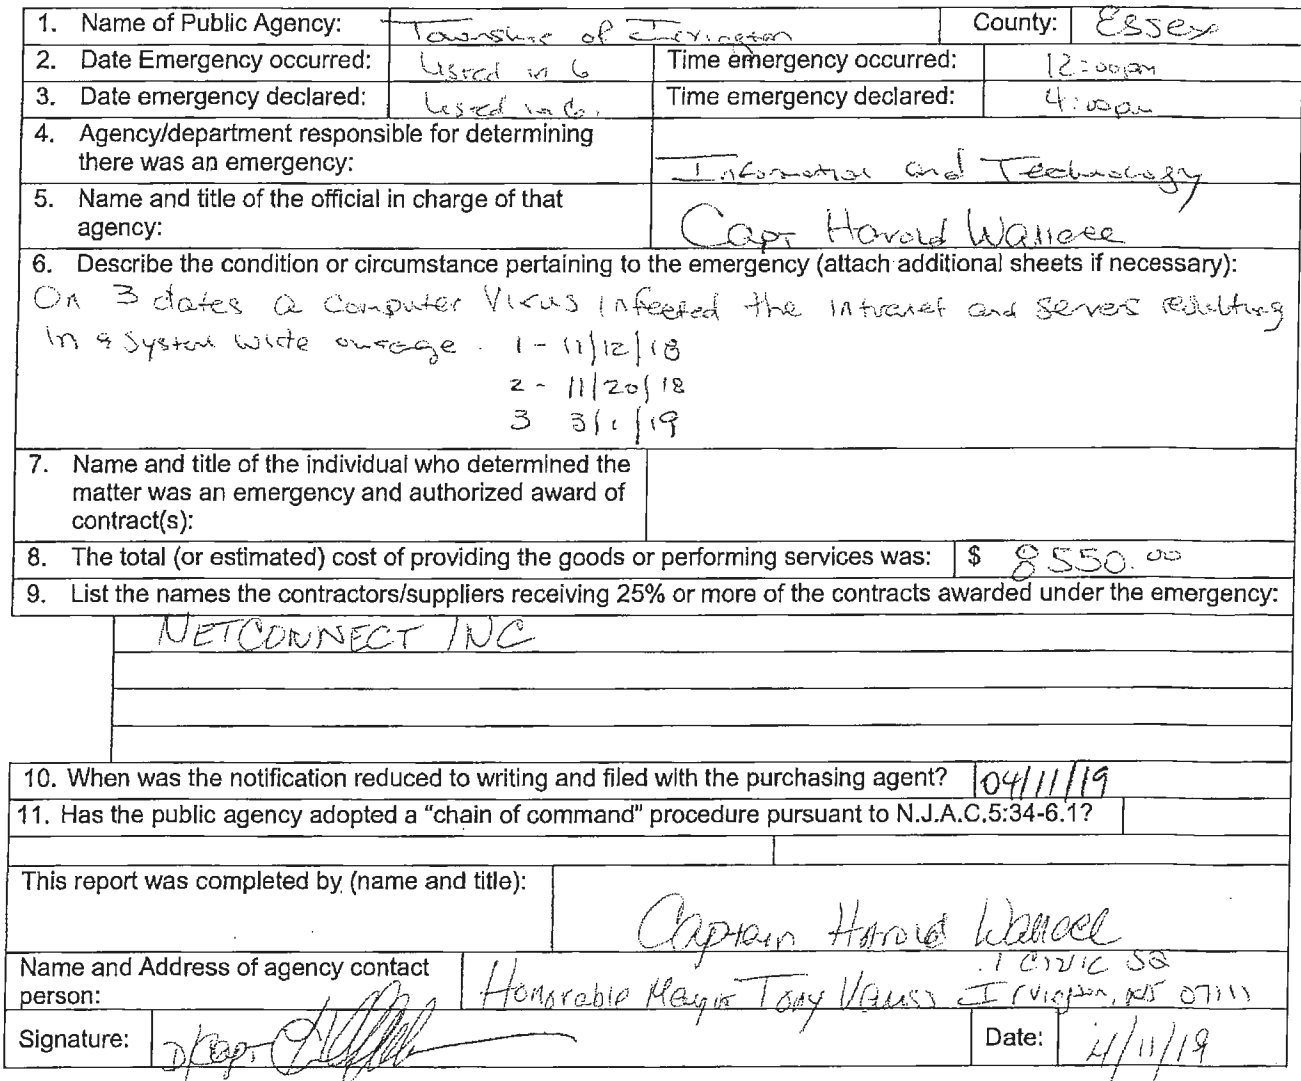 1. Name of Public Agency: Township of Irvington County: Essex
2. Date Emergency occurred: Listed in 6 Time emergency occurred: 12:00pm
3. Date emergency declared: Listed in 6. Time emergency declared: 4:00pm
4. Agency/department responsible for determining
there was an emergency: Information and Technology
5. Name and title of the official in charge of that
agency: Capt Harold Wallace
6. Describe the condition or circumstance pertaining to the emergency (attach additional sheets if necessary):
On 3 dates a computer Virus infected the intranet and server resulting
in a system wide outage. 1 - 11/12/18
2 - 11/20/18
3 3/1/19
7. Name and title of the individual who determined the
matter was an emergency and authorized award of
contract(s):
8. The total (or estimated) cost of providing the goods or performing services was: $ 8550.00
9. List the names the contractors/suppliers receiving 25% or more of the contracts awarded under the emergency:
NETCONNECT INC
10. When was the notification reduced to writing and filed with the purchasing agent? 04/11/19
11. Has the public agency adopted a "chain of command" procedure pursuant to N.J.A.C.5:34-6.1?
This report was completed by (name and title):
Captain Harold Wallace
Name and Address of agency contact 1 CIVIC SQ
person: Honorable Mayor Tony Vauss Irvington, NJ 07111
Signature: D/Capt Date: 4/11/19